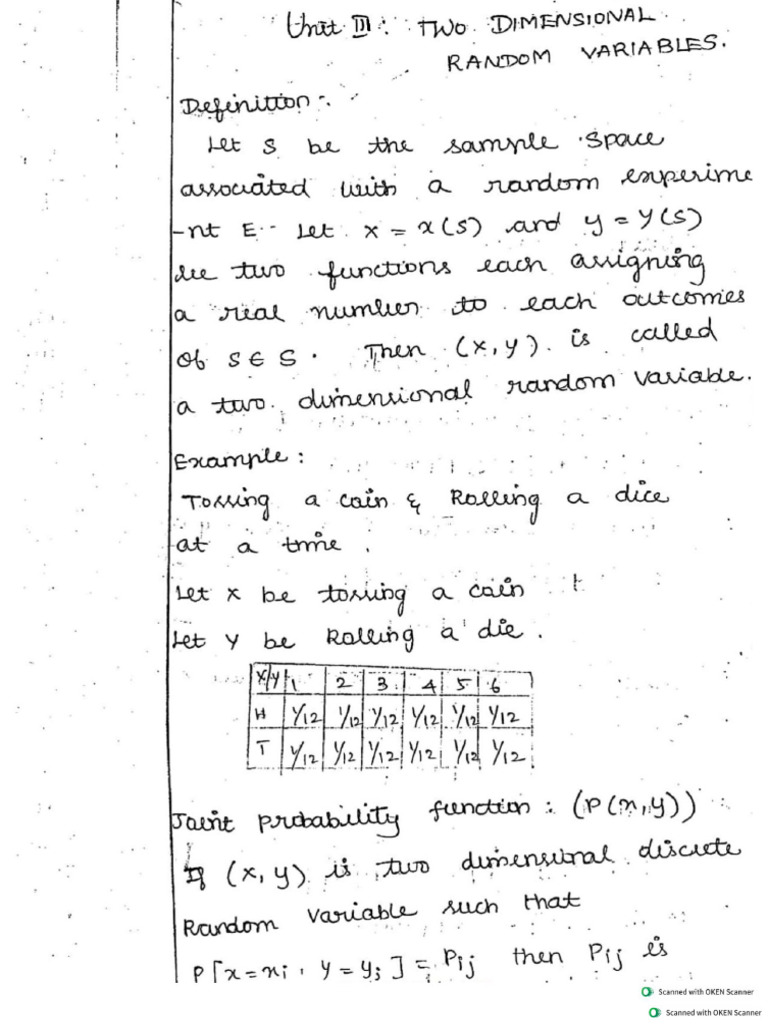 Unit II : TWO DIMENSIONAL
RANDOM VARIABLES.
Definition:-
Let S be the sample space
associated with a random experime
-nt E. Let x = x(s) and y = y(s)
be two functions each assigning
a real number to each outcomes
of s ∈ S. Then (x, y) is called
a two dimensional random variable.
Example :
Tossing a coin & Rolling a dice
at a time.
Let x be tossing a coin
Let y be Rolling a die.
x/y 1 2 3 4 5 6
H 1/12 1/12 1/12 1/12 1/12 1/12
T 1/12 1/12 1/12 1/12 1/12 1/12
Joint probability function : (P(x,y))
If (x, y) is two dimensional discrete
Random variable such that
P[x=xi, y=yj] = Pij then Pij is
Scanned with OKEN Scanner
Scanned with OKEN Scanner